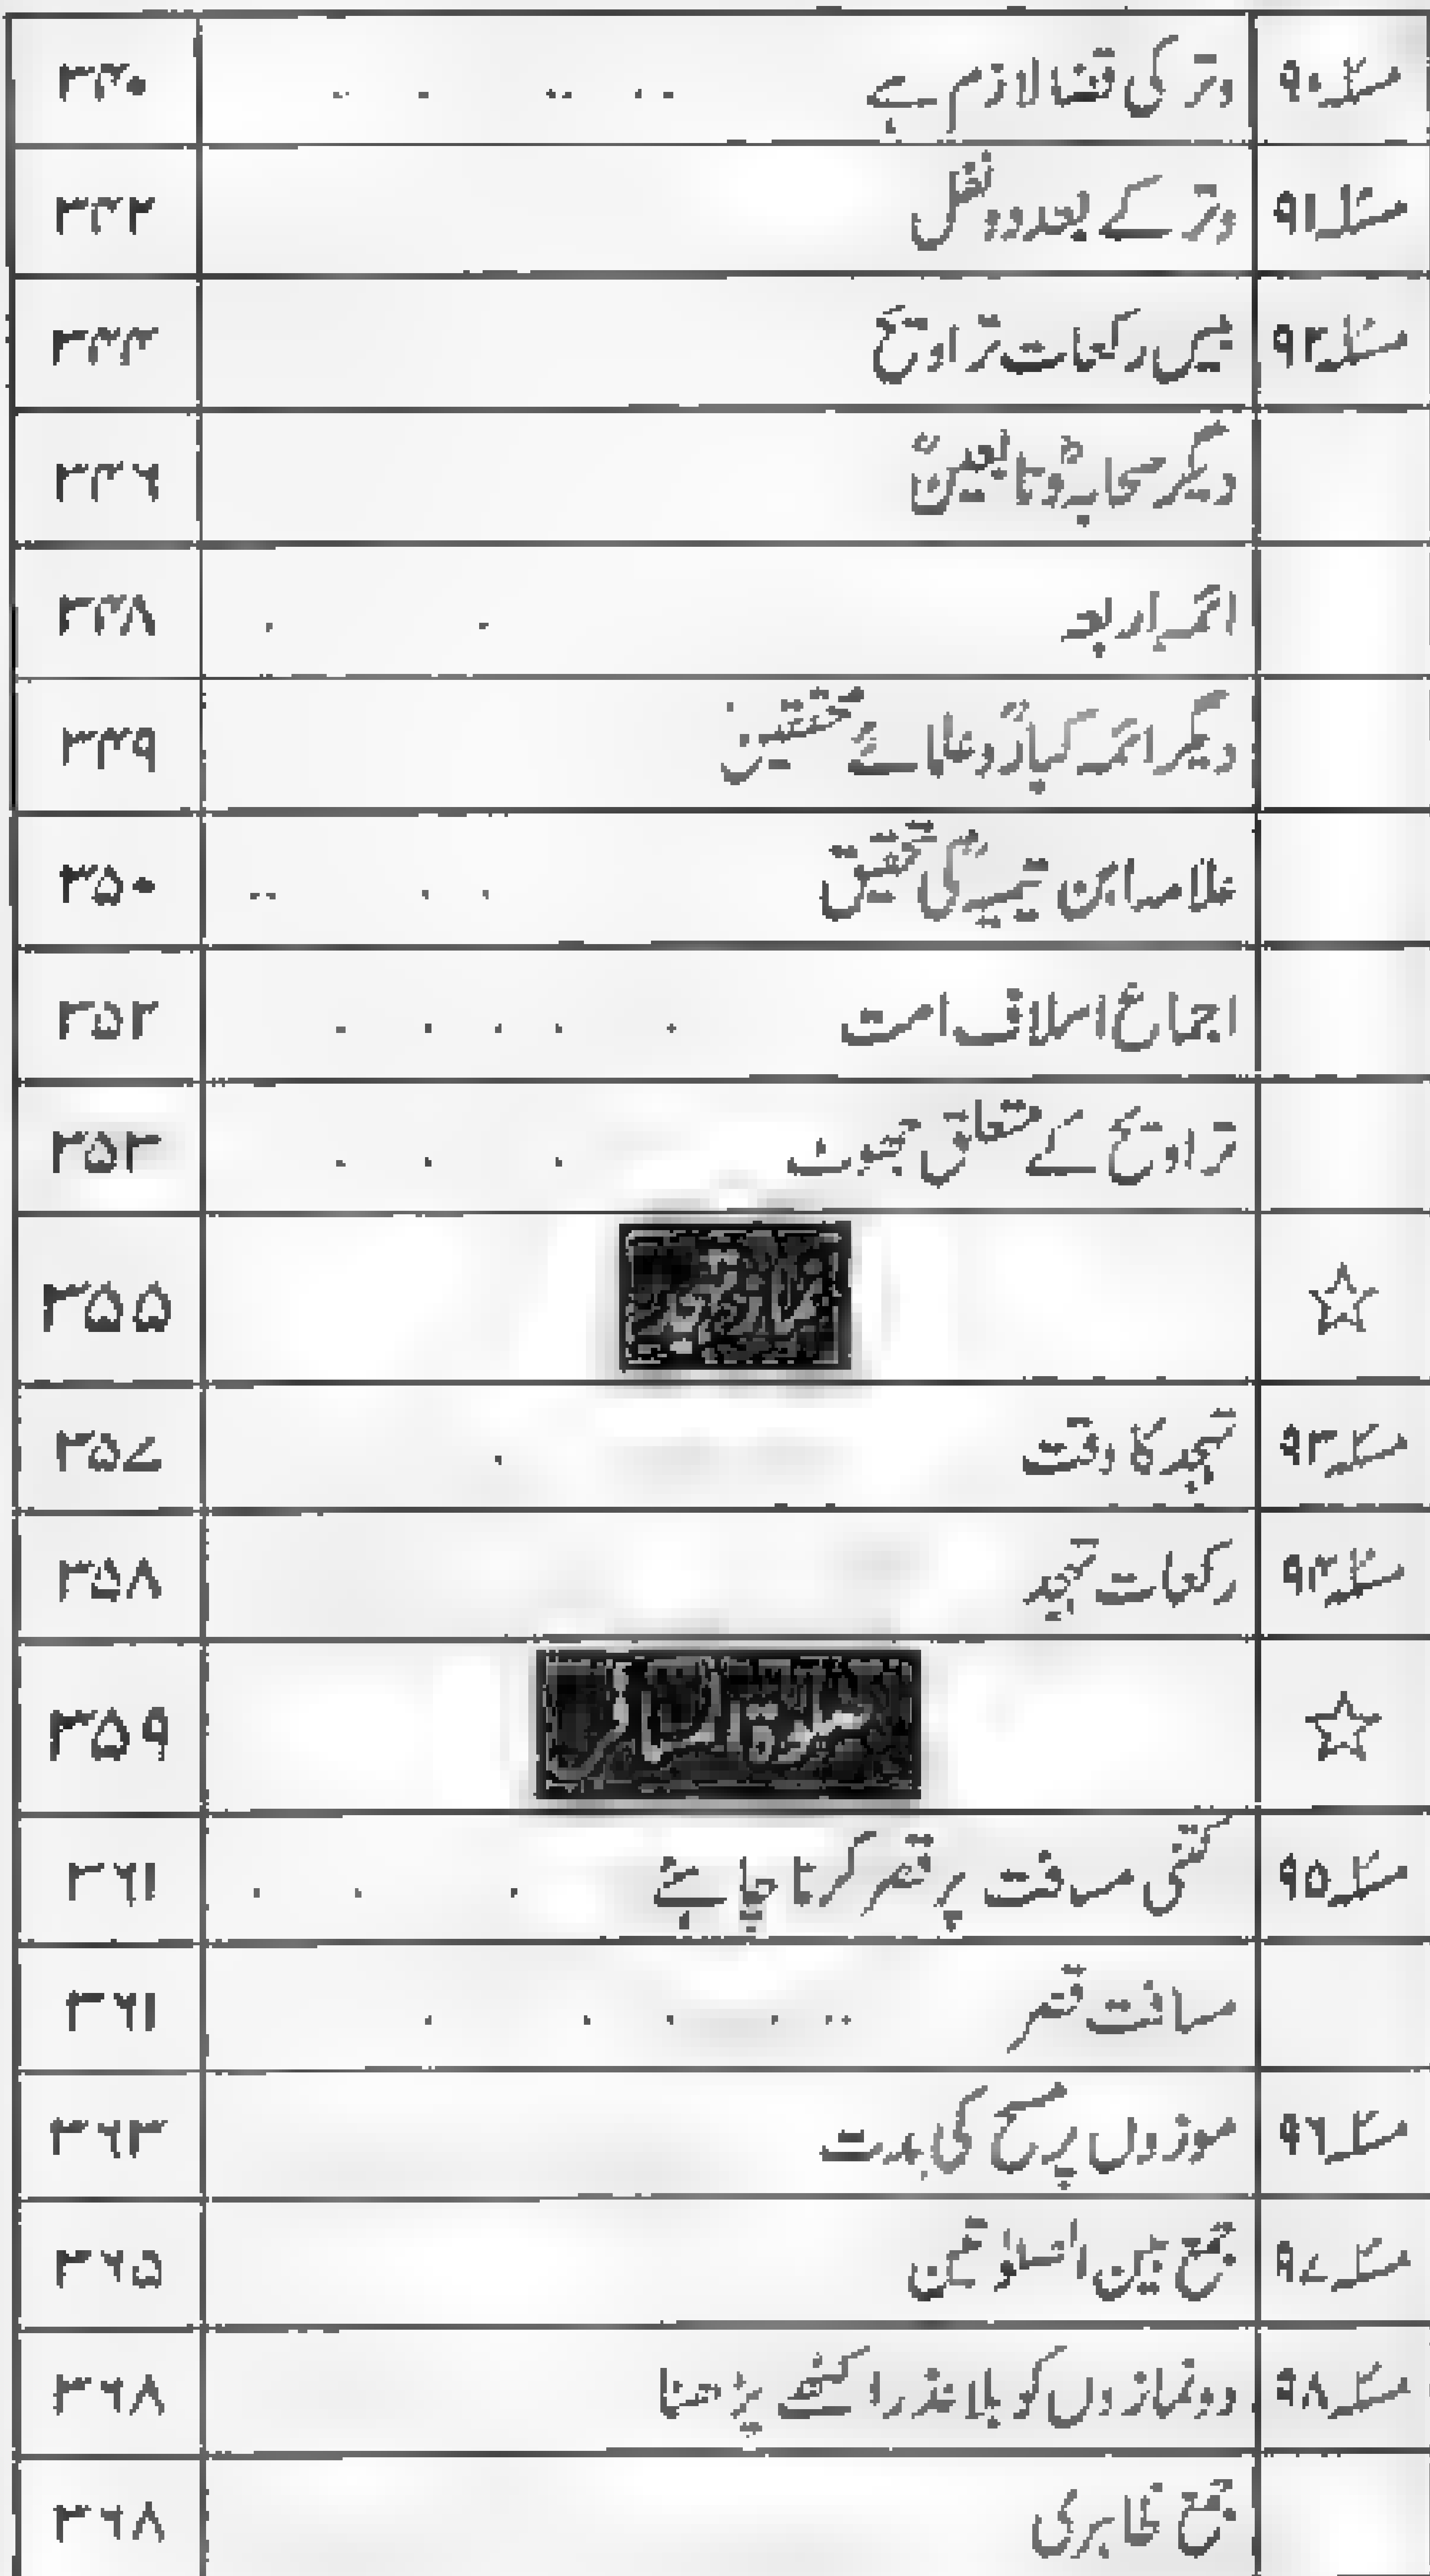 مسئلہ ۹۰ وتر کی قضا لازم ہے ۳۴۰
مسئلہ ۹۱ وتر کے بعد دو نفل ۳۴۲
مسئلہ ۹۲ بیس رکعات تراویح ۳۴۴
دیگر صحابہؓ و تابعینؒ ۳۴۶
ائمہ اربعہ ۳۴۸
دیگر ائمہ کبارؒ و علمائے محققینؒ ۳۴۹
علامہ ابن تیمیہؒ کی تحقیق ۳۵۰
اجماع اسلاف امت ۳۵۲
تراویح کے متعلق جھوٹ ۳۵۳
☆ نماز تہجد ۳۵۵
مسئلہ ۹۳ تہجد کا وقت ۳۵۷
مسئلہ ۹۴ رکعات تہجد ۳۵۸
☆ صلوٰۃ المسافر ۳۵۹
مسئلہ ۹۵ کتنی مسافت پر قصر کرنا چاہئے ۳۶۱
مسافت قصر ۳۶۱
مسئلہ ۹۶ موزوں پر مسح کی مدت ۳۶۳
مسئلہ ۹۷ جمع بین الصلوٰتین ۳۶۵
مسئلہ ۹۸ دو نمازوں کو بلا عذر اکٹھے پڑھنا ۳۶۸
جمع ظاہری ۳۶۸